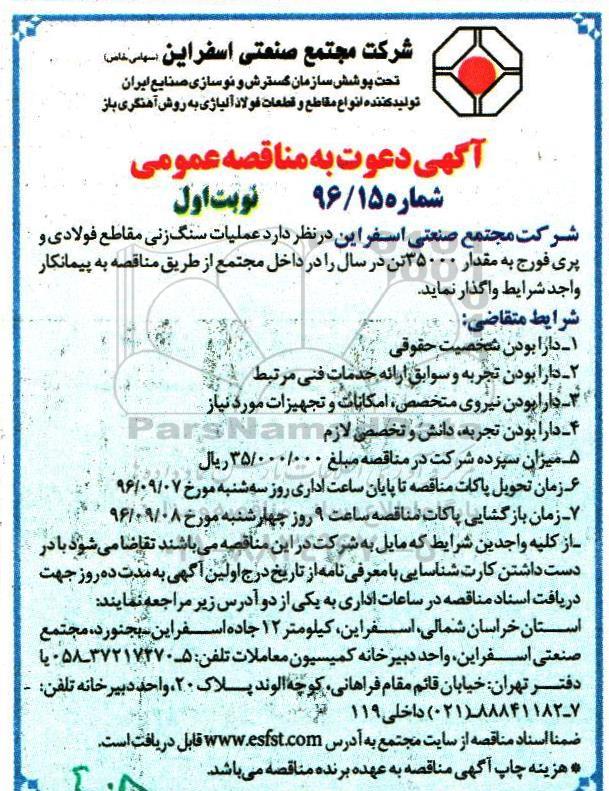 شرکت مجتمع صنعتی اسفراین (سهامی خاص)
تحت پوشش سازمان گسترش و نوسازی صنایع ایران
تولیدکننده انواع مقاطع و قطعات فولاد آلیاژی به روش آهنگری باز
آگهی دعوت به مناقصه عمومی
شماره ۹۶/۱۵ نوبت اول
شرکت مجتمع صنعتی اسفراین در نظر دارد عملیات سنگ زنی مقاطع فولادی و
پری فورج به مقدار ۳۵۰۰۰ تن در سال را در داخل مجتمع از طریق مناقصه به پیمانکار
واجد شرایط واگذار نماید.
شرایط متقاضی:
۱ـ دارا بودن شخصیت حقوقی
۲ـ دارا بودن تجربه و سوابق ارائه خدمات فنی مرتبط
۳ـ دارا بودن نیروی متخصص، امکانات و تجهیزات مورد نیاز
۴ـ دارا بودن تجربه، دانش و تخصص لازم
۵ـ میزان سپرده شرکت در مناقصه مبلغ ۳۵/۰۰۰/۰۰۰ ریال
۶ـ زمان تحویل پاکات مناقصه تا پایان ساعت اداری روز سه‌شنبه مورخ ۹۶/۰۹/۰۷
۷ـ زمان بازگشایی پاکات مناقصه ساعت ۹ روز چهارشنبه مورخ ۹۶/۰۹/۰۸
ـ از کلیه واجدین شرایط که مایل به شرکت در این مناقصه می‌باشند تقاضا می‌شود با در
دست داشتن کارت شناسایی یا معرفی نامه از تاریخ درج اولین آگهی به مدت ده روز جهت
دریافت اسناد مناقصه در ساعات اداری به یکی از دو آدرس زیر مراجعه نمایند:
استان خراسان شمالی، اسفراین، کیلومتر ۱۲ جاده اسفراین ـ بجنورد، مجتمع
صنعتی اسفراین، واحد دبیرخانه کمیسیون معاملات تلفن: ۵ـ۳۷۲۱۷۲۷۰ـ۰۵۸ یا
دفتر تهران: خیابان قائم مقام فراهانی، کوچه الوند پلاک ۲۰، واحد دبیرخانه تلفن:
۷ـ۸۸۸۴۱۱۸۲(۰۲۱) داخلی ۱۱۹
ضمنا اسناد مناقصه از سایت مجتمع به آدرس www.esfst.com قابل دریافت است.
* هزینه چاپ آگهی مناقصه به عهده برنده مناقصه می‌باشد.